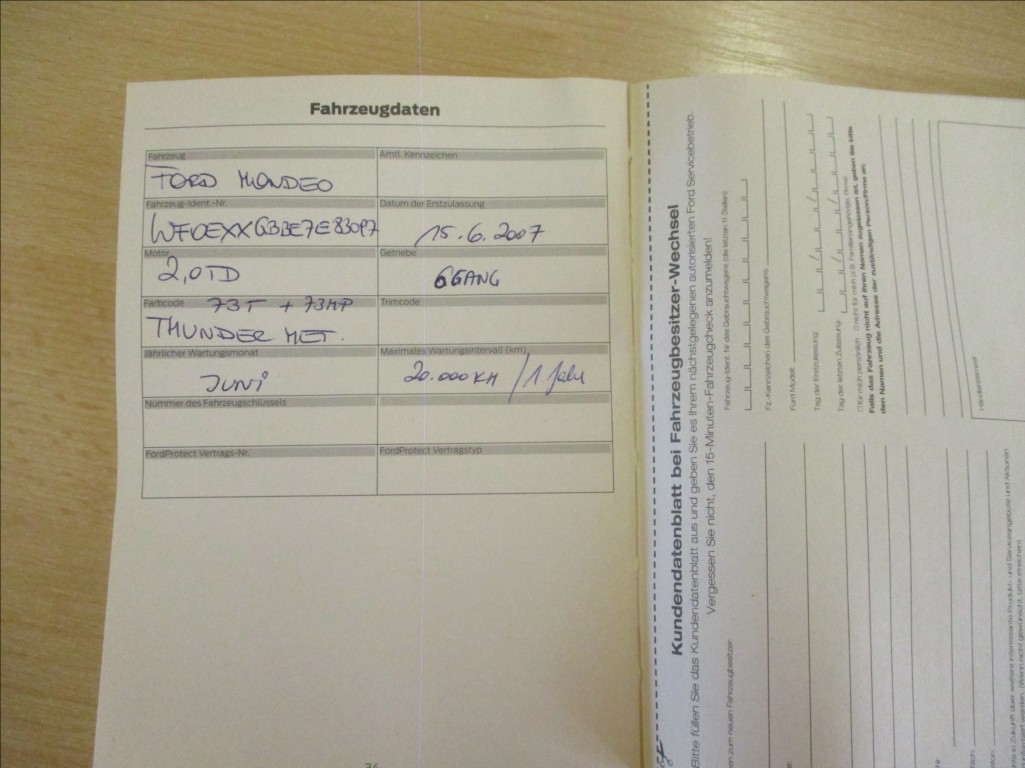 Fahrzeugdaten
Fahrzeug
FORD MONDEO
Amtl. Kennzeichen
Fahrzeug-Ident.-Nr.
Datum der Erstzulassung
15.6.2007
Motor
2,0TD
Getriebe
6GANG
Farbcode 73T + 73MP
THUNDER MET.
Trimcode
Jährlicher Wartungsmonat
JUNI
Maximales Wartungsintervall (km)
20.000KM / 1 Jahr
Nummer des Fahrzeugschlüssels
FordProtect Vertrags-Nr.
FordProtect Vertragstyp
Kundendatenblatt bei Fahrzeugbesitzer-Wechsel
Bitte füllen Sie das Kundendatenblatt aus und geben Sie es Ihrem nächstgelegenen autorisierten Ford Servicebetrieb.
Vergessen Sie nicht, den 15-Minuten-Fahrzeugcheck anzumelden!
Fahrzeug-Ident. Nr des Gebrauchtwagens (die letzten 11 Stellen)
Fz.-Kennzeichen des Gebrauchtwagens
Ford Modell
Tag der Erstzulassung
Tag der letzten Zulassung
für mich persönlich
Falls das Fahrzeug nicht auf Ihren Namen zugelassen ist, geben Sie bitte
den Namen und die Adresse der zuständigen Person/Firma an:
Händlerstempel
en zum neuen Fahrzeugbesitzer